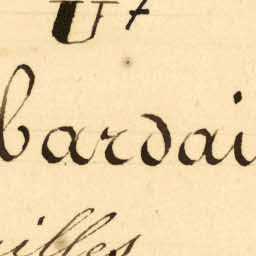 bardai
illes